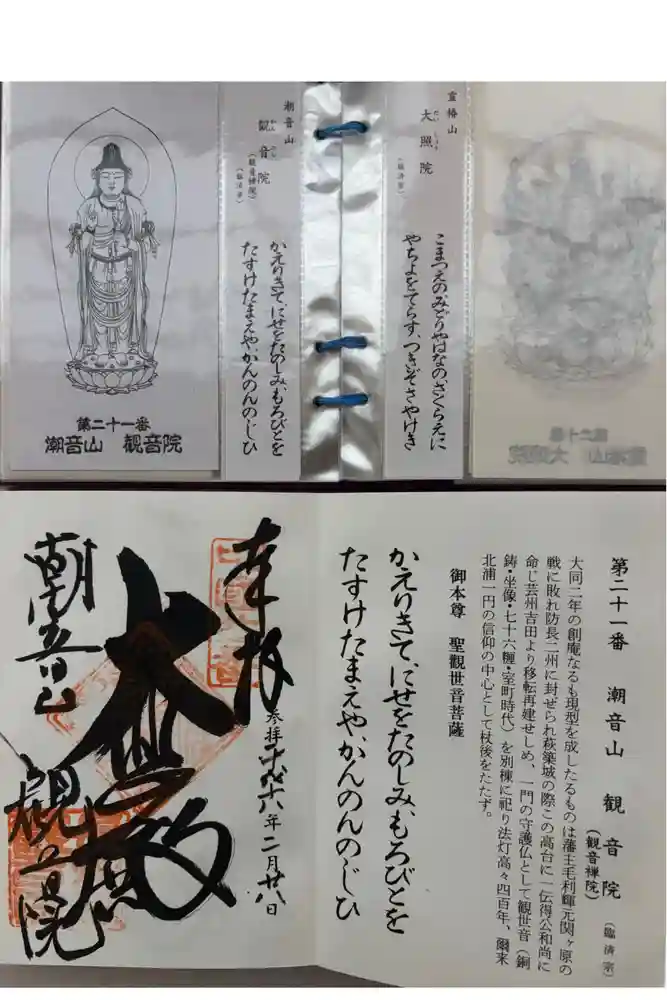 潮音山
観音院
かんのんいん
（観音禅院）
（臨済宗）
かえりきて、にせをたのしみ、もろびとを
たすけたまえや、かんのんのじひ
第二十一番
潮音山　観音院
霊椿山
大照院
だいしょう
（臨済宗）
こまつえのみどりやはなの、さくらえに
やちよをてらす、つきぞさやけき
第二十一番　潮音山　観音院
（観音禅院）
（臨済宗）
大同二年の創庵なるも現型を成したるものは藩主毛利輝元関ヶ原の
戦に敗れ防長二州に封ぜられ萩築城の際この高台に一伝得公和尚に
命じ芸州吉田より移転再建せしめ、一門の守護仏として観世音（銅
鋳・坐像・七十六糎・室町時代）を別棟に祀り法灯高々四百年、爾来
北浦一円の信仰の中心として杖後をたたず。
御本尊　聖観世音菩薩
かえりきて、にせをたのしみ、もろびとを
たすけたまえや、かんのんのじひ
奉拝
参拝
六年二月廿八日
大悲殿
潮音山
観音院